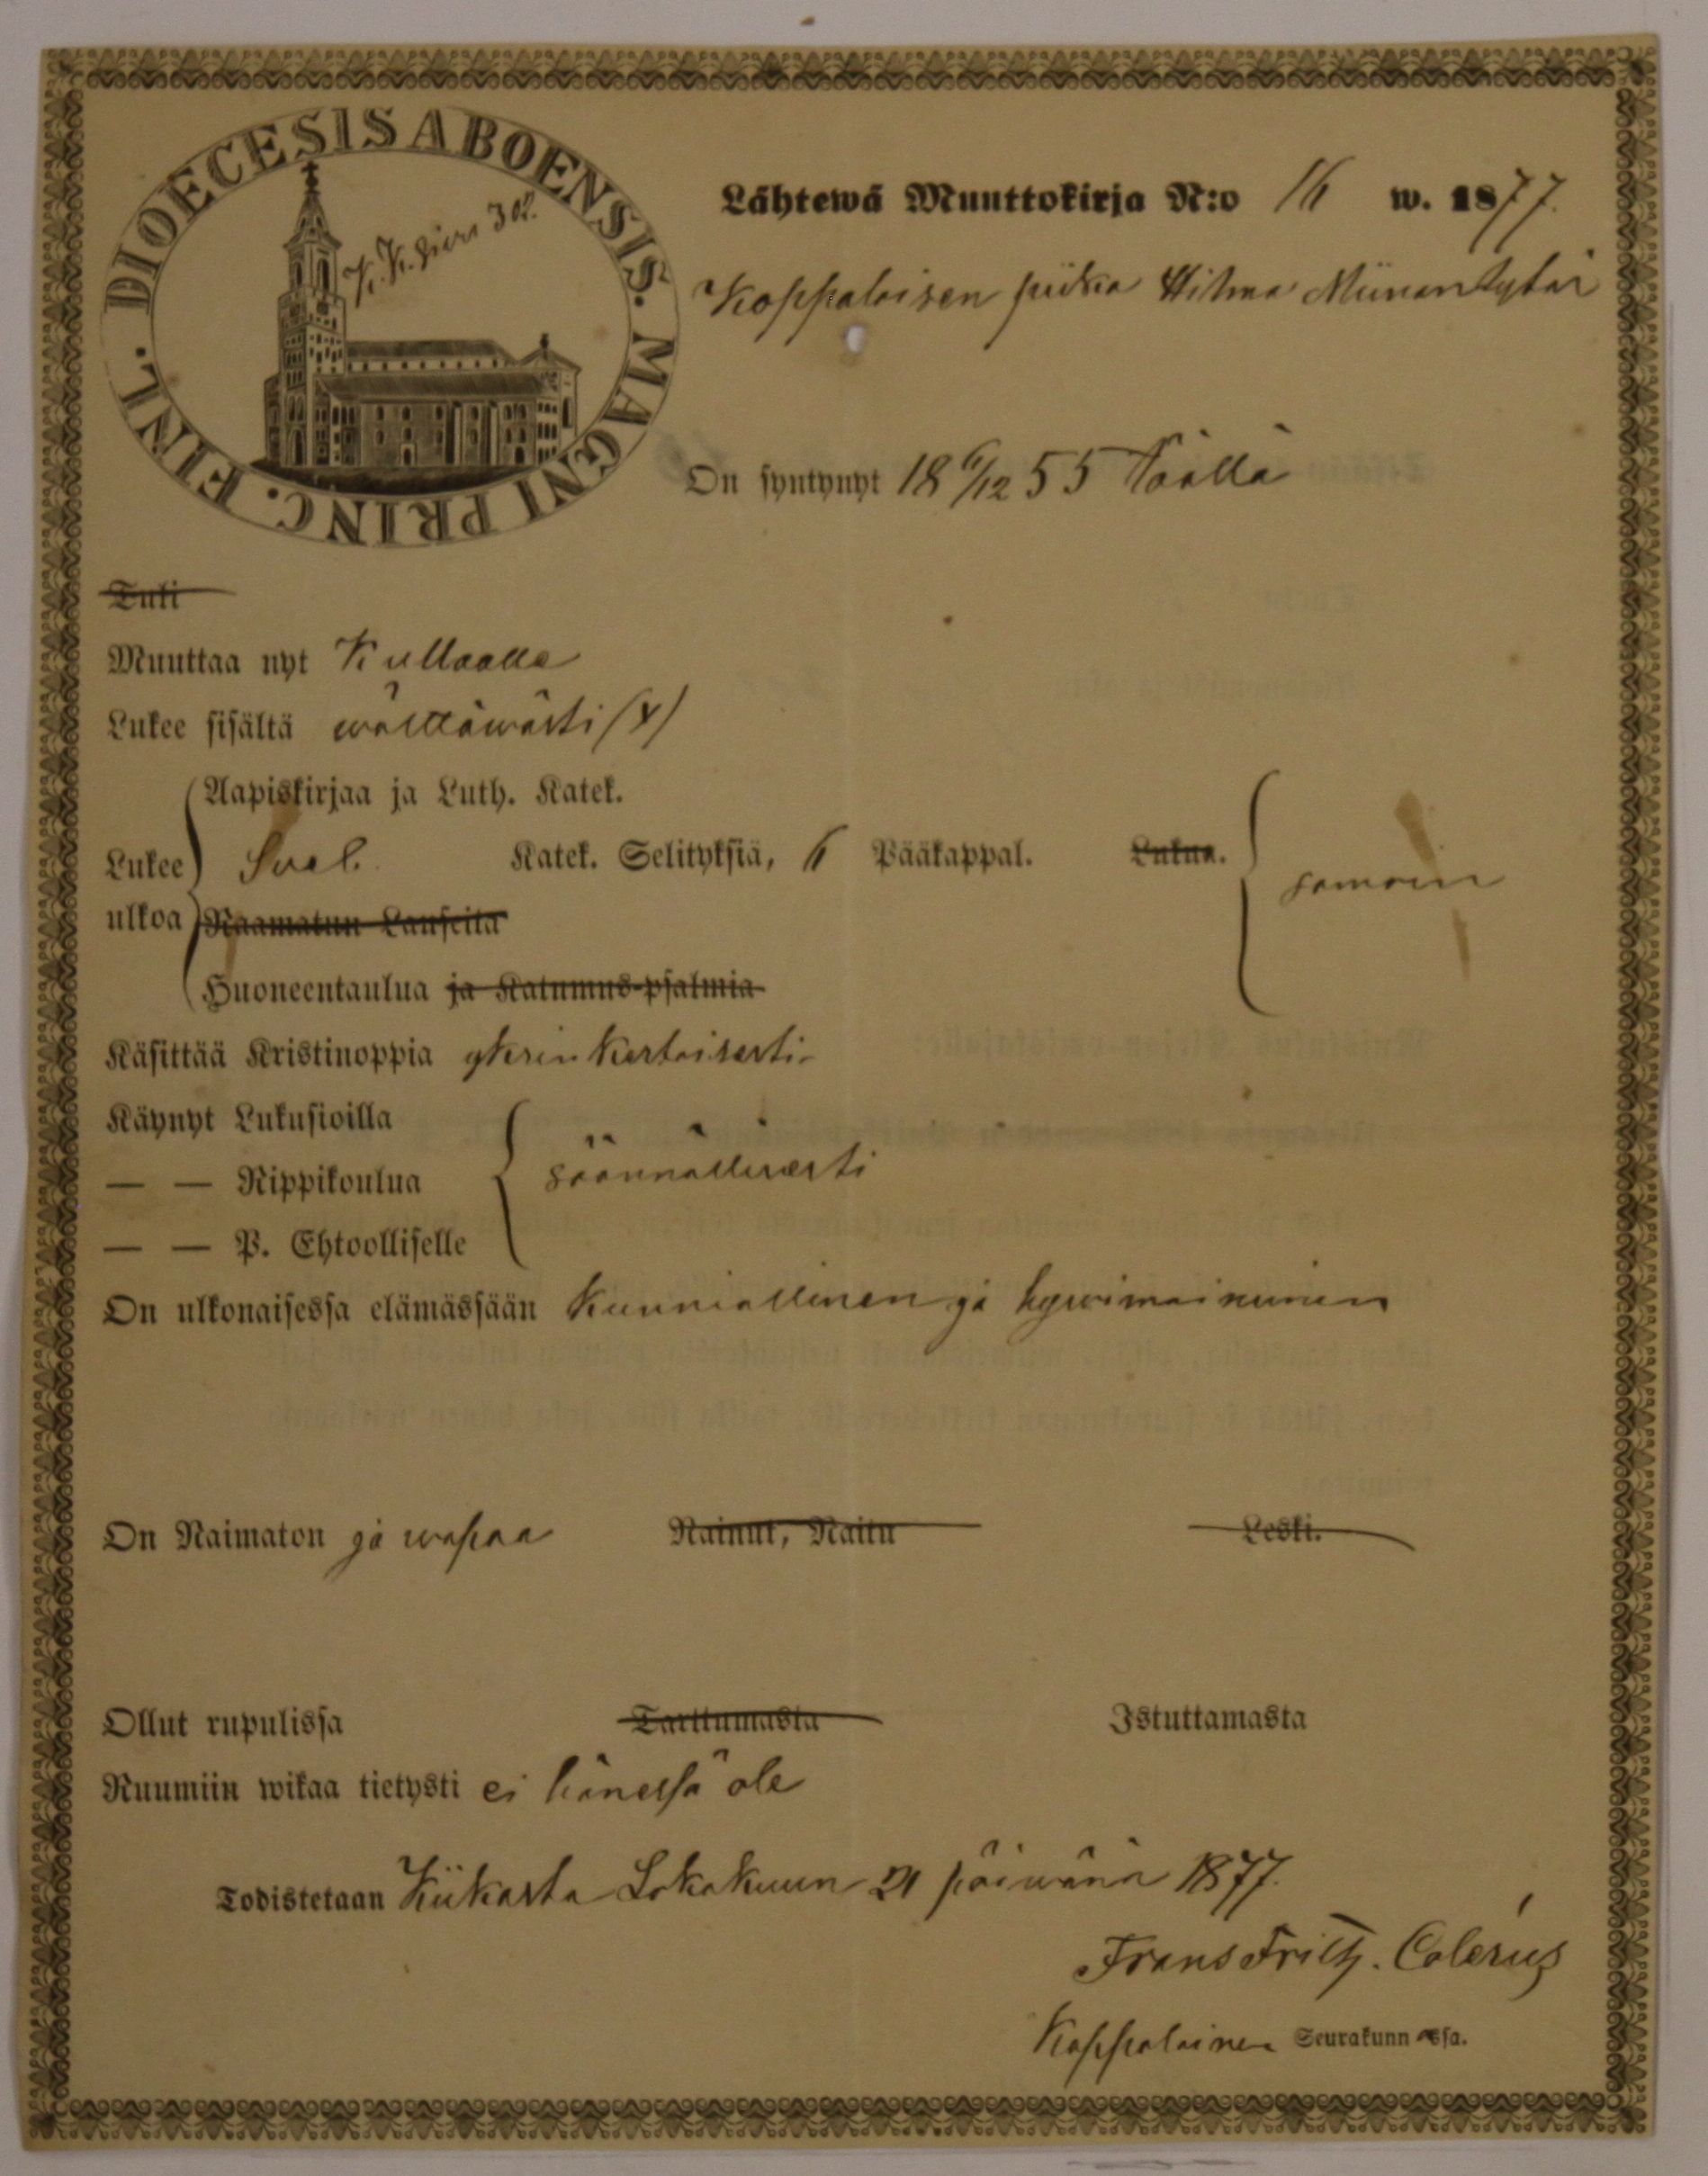 DIOECESIS ABOENSIS. MAGNI PRINC. FINL.
K. K. sivu 302.
Lähtewä Muuttokirja N:o 16 w. 1877.
Kappalaisen piika Hilma Miinantytär
On syntynyt 18 6/12 55 Täällä
Tuli
Muuttaa nyt Kullaalle
Lukee sisältä wälttäwästi (y)
Aapiskirjaa ja Luth. Katek.
Lukee ulkoa Sveb. Katek. Selityksiä, 6 Pääkappal. Lukua. samoin
Raamatun Lauseita
Huoneentaulua ja Katumus-psalmia
Käsittää Kristinoppia yksinkertaisesti
Käynyt Lukusioilla
— — Rippikoulua säännöllisesti
— — P. Ehtoolliselle
On ulkonaisessa elämässään Kunniallinen ja hywämaineinen
On Naimaton ja wapaa Nainut, Naitu Leski.
Ollut rupulissa Tarttumasta Istuttamasta
Ruumiin wikaa tietysti ei hänessä ole
Todistetaan Kiikasta Lokakuun 21 päiwänä 1877.
Frans Fritz. Colérus
Kappalainen Seurakunnassa.